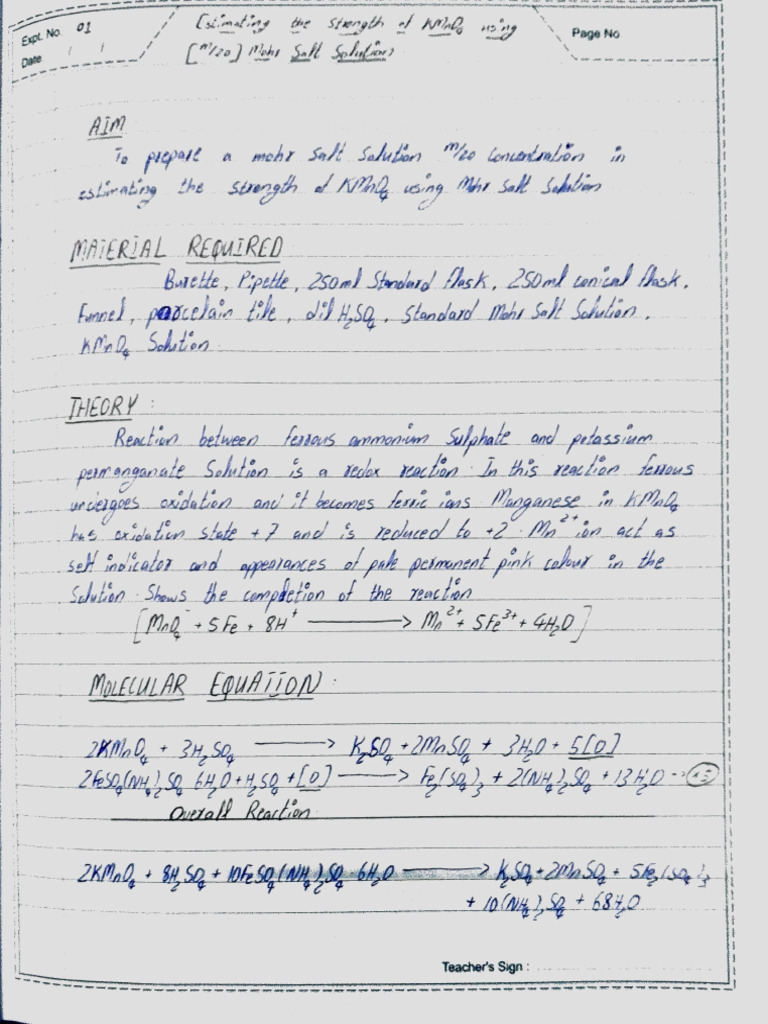 Expt. No. 01
Date
Estimating the strength of KMnO₄ using
[M/20] Mohr Salt Solution)
Page No
AIM
To prepare a mohr salt solution M/20 concentration in
estimating the strength of KMnO₄ using Mohr salt solution
MATERIAL REQUIRED
Burette, Pipette, 250ml Standard flask, 250ml conical flask,
Funnel, porcelain tile, dil H₂SO₄, Standard Mohr Salt Solution,
KMnO₄ Solution
THEORY :
Reaction between ferrous ammonium sulphate and potassium
permanganate solution is a redox reaction. In this reaction ferrous
undergoes oxidation and it becomes ferric ions. Manganese in KMnO₄
has oxidation state +7 and is reduced to +2. Mn²⁺ ion act as
self indicator and appearances of pale permanent pink colour in the
Solution. Shows the completion of the reaction
[MnO₄⁻ + 5Fe + 8H⁺ ⟶ Mn²⁺ + 5Fe³⁺ + 4H₂O]
MOLECULAR EQUATION :
2KMnO₄ + 3H₂SO₄ ⟶ K₂SO₄ + 2MnSO₄ + 3H₂O + 5[O]
2FeSO₄(NH₄)₂SO₄ 6H₂O + H₂SO₄ + [O] ⟶ Fe₂(SO₄)₃ + 2(NH₄)₂SO₄ + 13H₂O → ×5
Overall Reaction
2KMnO₄ + 8H₂SO₄ + 10FeSO₄(NH₄)₂SO₄ 6H₂O ⟶ K₂SO₄ + 2MnSO₄ + 5Fe₂(SO₄)₃
+ 10(NH₄)₂SO₄ + 68H₂O
Teacher's Sign :